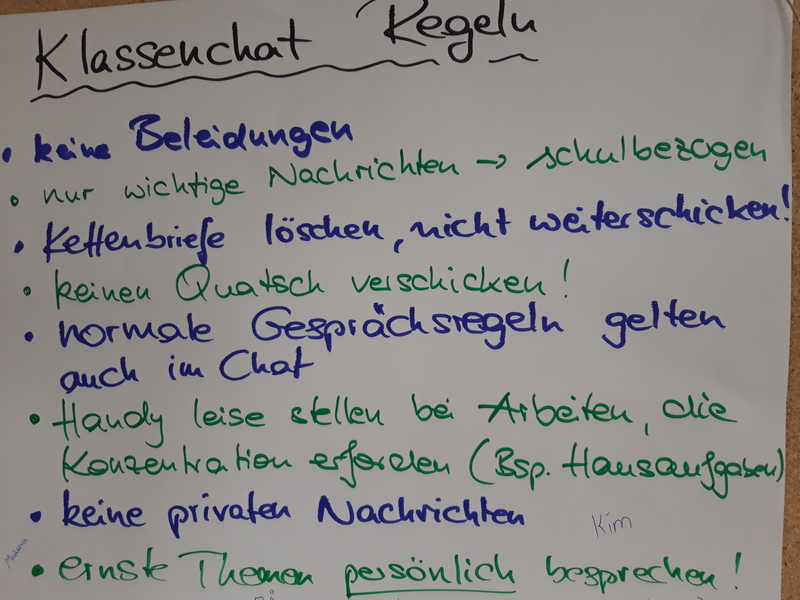 Klassenchat Regeln
• keine Beleidungen
• nur wichtige Nachrichten → schulbezogen
• Kettenbriefe löschen, nicht weiterschicken!
• keinen Quatsch verschicken!
• normale Gesprächsregeln gelten
auch im Chat
• Handy leise stellen bei Arbeiten, die
Konzentration erfordern (Bsp. Hausaufgaben)
• keine privaten Nachrichten
Kim
• ernste Themen persönlich besprechen!